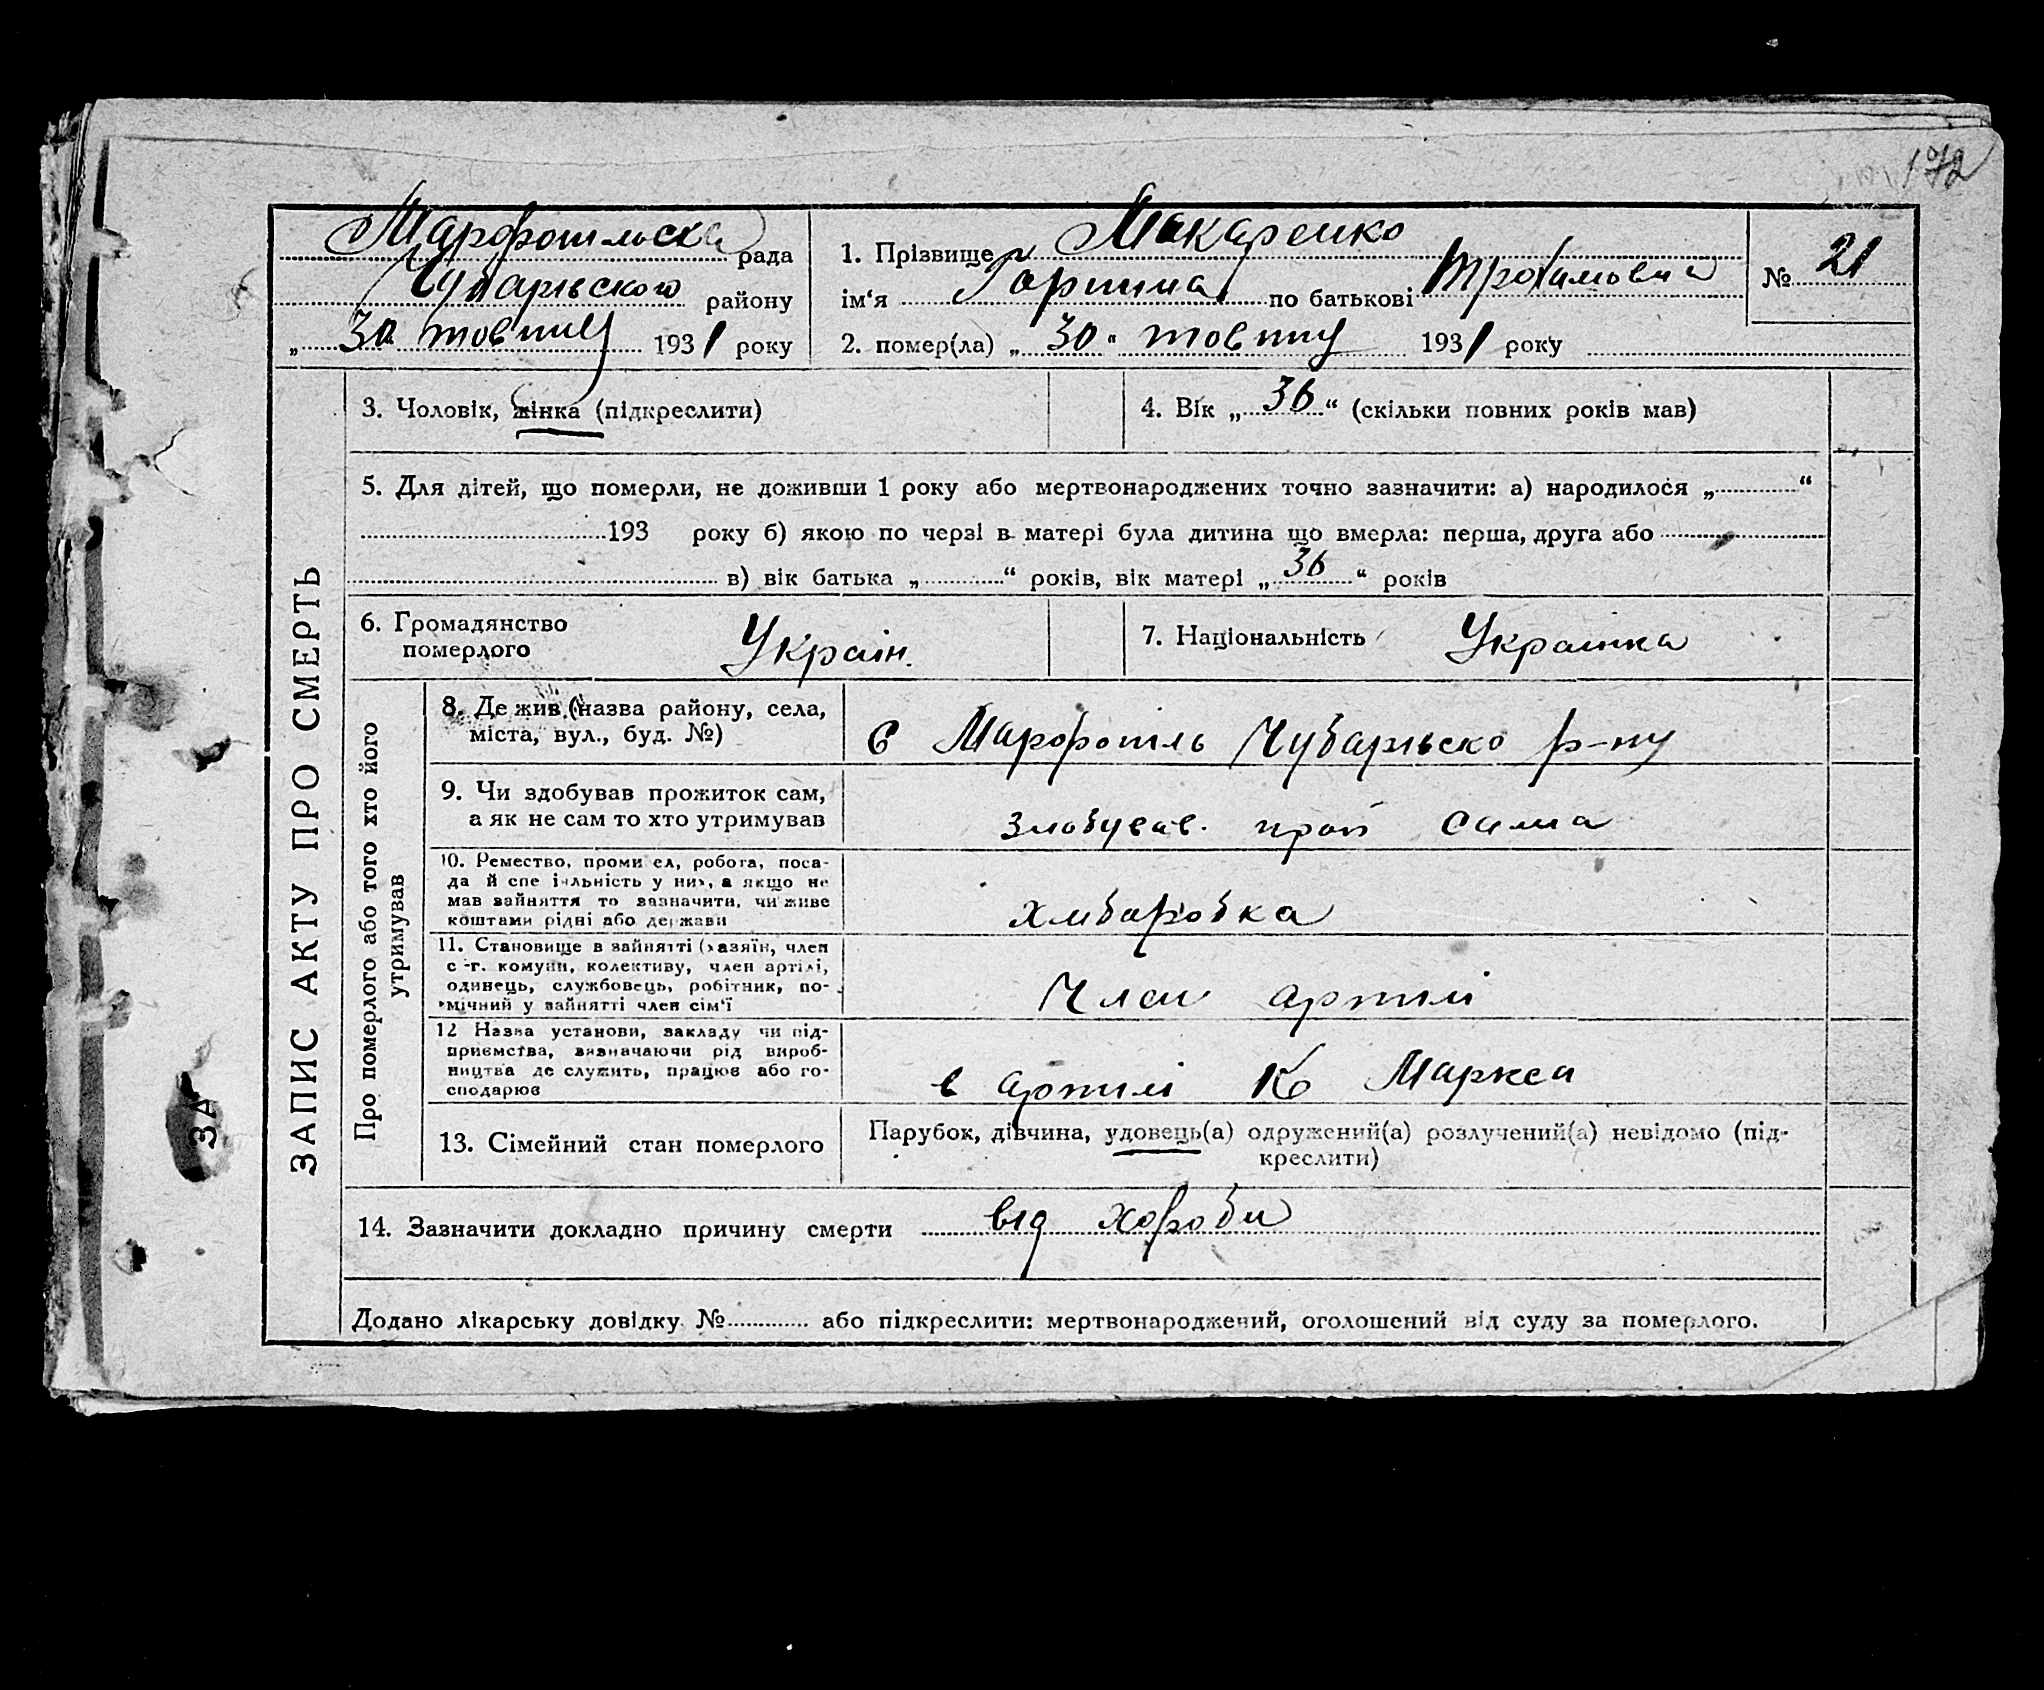 172
Марфопільска рада
Чубарівського району
„ 30 жовтня 1931 року
1. Прізвище Макаренко
ім‘я Горпина по батькові Трохимовна
№ 21
2. помер(ла) „ 30 “ жовтня 1931 року
ЗАПИС АКТУ ПРО СМЕРТЬ
3. Чоловік, жінка (підкреслити)
4. Вік „ 36 “ (скільки повних років мав)
5. Для дітей, що померли, не доживши 1 року або мертвонароджених точно зазначити: а) народилося „ “
193 року б) якою по черзі в матері була дитина що вмерла: перша, друга або
в) вік батька „ “ років, вік матері „ 36 “ років
6. Громадянство
померлого
Україн.
7. Національність Українка
Про померлого або того хто його
утримував
8. Де жив (назва району, села,
міста, вул., буд. №)
С Марфопіль Чубарівско р-ну
9. Чи здобував прожиток сам,
а як не сам то хто утримував
сама
10. Ремество, промисел, робота, поса-
да й спеціяльність у них, а якщо не
мав зайняття то зазначити, чи живе
коштами рідні або держави
хліборобка
11. Становище в зайнятті (хазяїн, член
с.-г. комуни, колективу, член артілі,
одинець, службовець, робітник, по-
мічний у зайнятті член сім‘ї
Член артілі
12 Назва установи, закладу чи під-
приємства, зазначаючи рід вироб-
ництва де служить, працює або го-
сподарює
в артілі К Маркса
13. Сімейний стан померлого
Парубок, дівчина, удовець(а) одружений(а) розлучений(а) невідомо (під-
креслити)
14. Зазначити докладно причину смерти від хороби
Додано лікарську довідку № або підкреслити: мертвонароджений, оголошений від суду за померлого.
ЗА